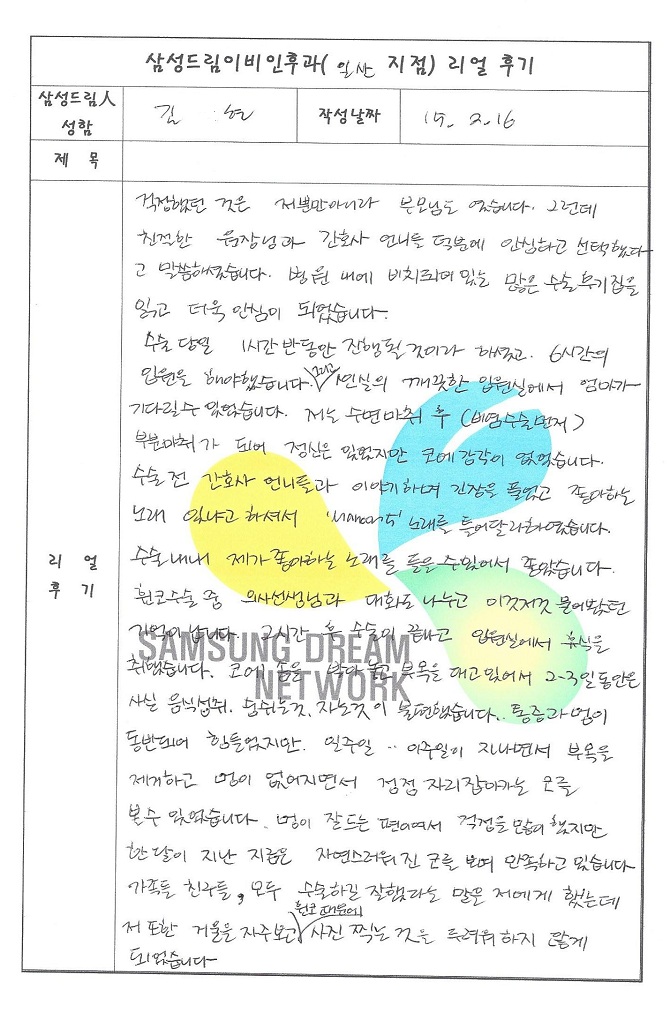 삼성드림이비인후과( 일산 지점) 리얼 후기
삼성드림人 성함 김 현 작성날짜 15. 2. 16
제 목
리 얼 후 기
걱정했던 것은 저뿐만아니라 부모님도 였습니다. 그런데
친절한 원장님과 간호사 언니들 덕분에 안심하고 선택했다
고 말씀하셨습니다. 병원 내에 비치되어 있는 많은 수술후기집을
읽고 더욱 안심이 되었습니다.
수술 당일 1시간 반동안 진행될 것이라 하셨고. 6시간의
입원을 해야했습니다. 1인실의 깨끗한 입원실에서 엄마가
기다릴수 있었습니다. 저는 수면마취 후 (비염수술먼저)
부분마취가 되어 정신은 있었지만 코에 감각이 없었습니다.
수술 전 간호사 언니들과 이야기하며 긴장을 풀었고 좋아하는
노래 있냐고 하셔서 'Maroon5' 노래를 틀어달라하였습니다.
수술내내 제가 좋아하는 노래를 들을 수있어서 좋았습니다.
휜코수술 중 의사선생님과 대화도 나누고 이것저것 물어봤던
기억이 납니다. 2시간 후 수술이 끝나고 입원실에서 휴식을
취했습니다. 코에 솜을 받다 물고 부목을 대고 있어서 2-3일동안은
사실 음식섭취. 숨쉬는것, 자는것이 불편했습니다.. 통증과 멍이
동반되어 힘들었지만. 일주일 .. 이주일이 지나면서 부목을
제거하고 멍이 없어지면서 점점 자리잡아가는 모를
볼수 있었습니다. 멍이 잘드는 편이여서 걱정을 많이 했지만
한달이 지난 지금은 자연스러워진 코를 보며 만족하고 있습니다
가족들 친구들, 모두 수술하길 잘했다는 말을 저에게 했는데
저 또한 거울을 자주보고 휜코 때문에 사진 찍는 것을 두려워 하지 않게
되었습니다
SAMSUNG DREAM
NETWORK